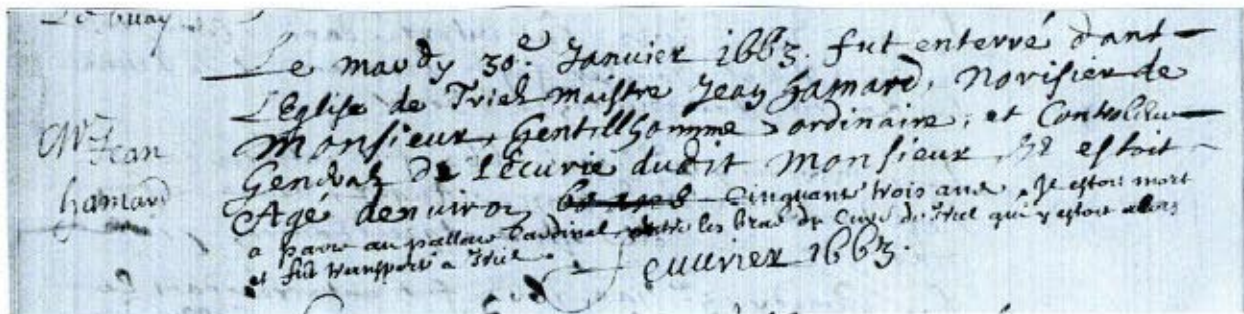 Le mardy 30e. Janvier 1663. fut enterré dant
L'Eglise de Triel maistre Jean hamard,
Mr Jean
Monsieur, Gentillhomme ordinaire, et Controlleur
hamard
General de L'écurie dudit Monsieur, il estoit
Agé denuiron Cinquant trois ans, Il estoit mort
a paris au pallais Cardinal, entre les bras du Curé de Triel qui y estoit alors
et fut transporté a Triel.
1663.